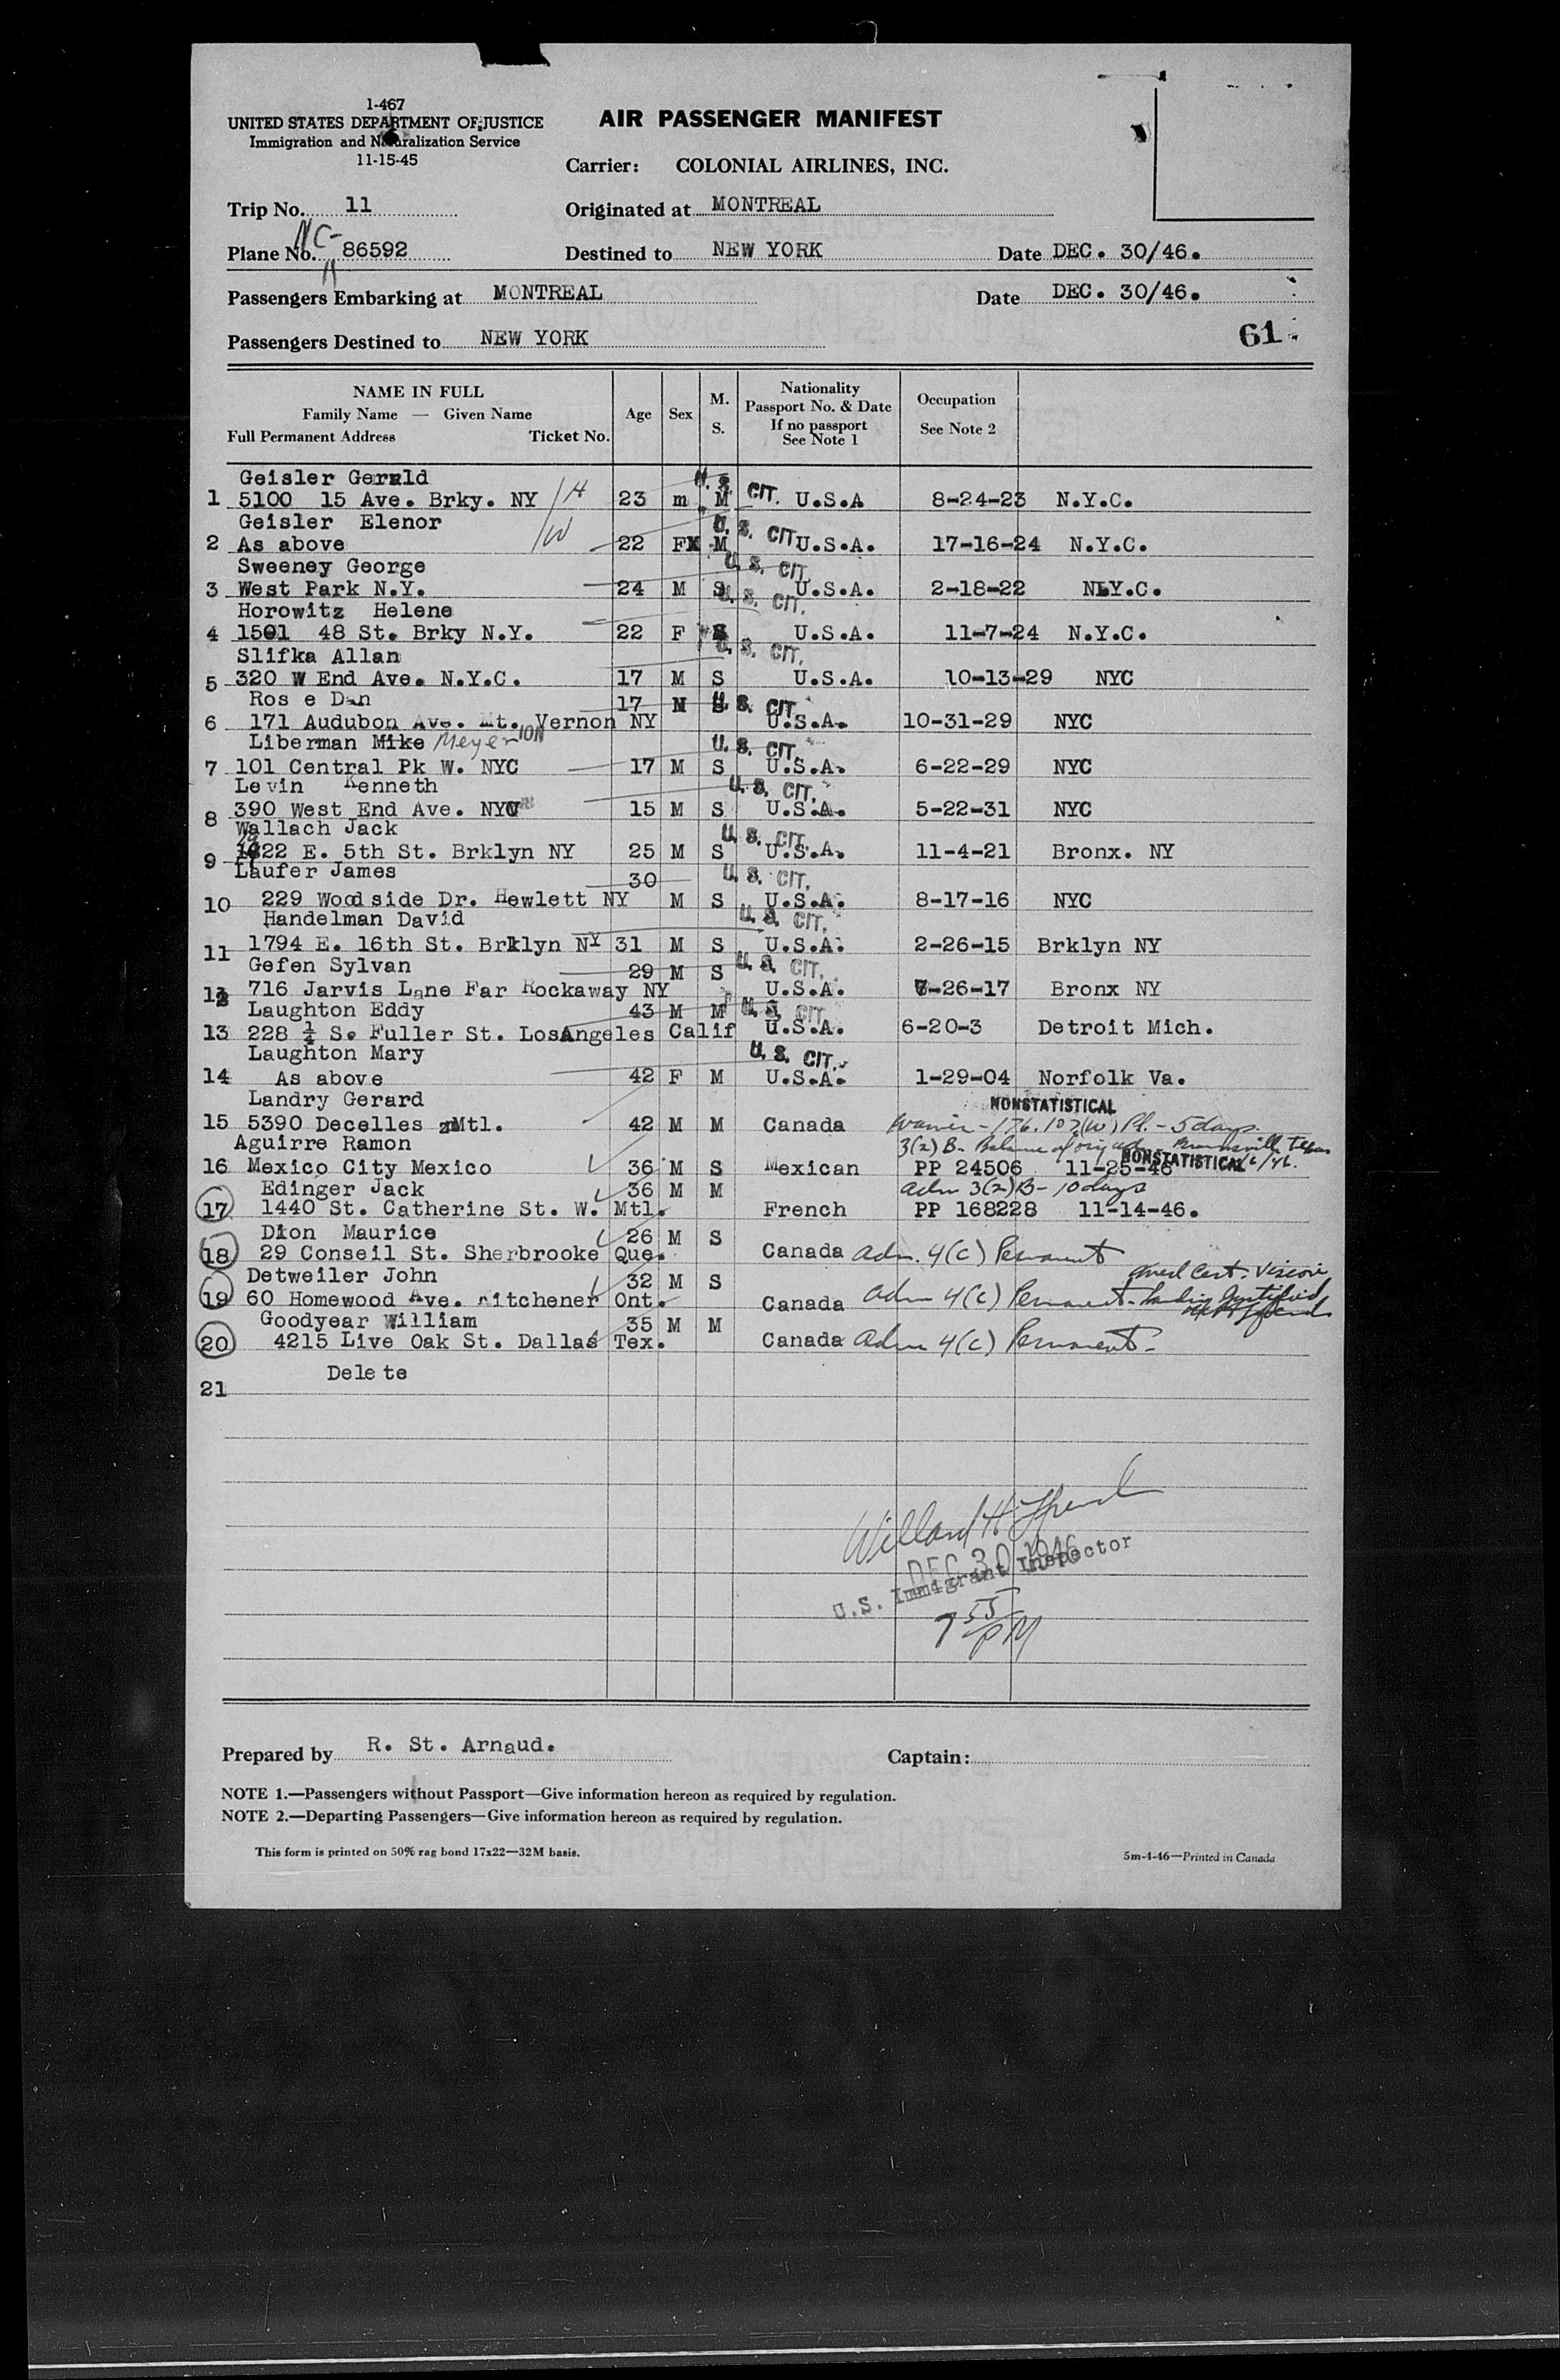 1-467
UNITED STATES DEPARTMENT OF JUSTICE
Immigration and Naturalization Service
11-15-45
AIR PASSENGER MANIFEST
Carrier: COLONIAL AIRLINES, INC.
Trip No. 11
Originated at MONTREAL
Plane No. NC- 86592
Destined to NEW YORK Date DEC. 30/46.
Passengers Embarking at MONTREAL Date DEC. 30/46.
Passengers Destined to NEW YORK
61
NAME IN FULL
Family Name — Given Name
Full Permanent Address Ticket No.
Age Sex M. S.
Nationality
Passport No. & Date
If no passport
See Note 1
Occupation
See Note 2
Geisler Gerald
1 5100 15 Ave. Brky. NY H 23 m M U.S. CIT. U.S.A 8-24-23 N.Y.C.
Geisler Elenor
2 As above W 22 F M U.S. CIT. U.S.A. 17-16-24 N.Y.C.
Sweeney George
3 West Park N.Y. 24 M S U.S. CIT. U.S.A. 2-18-22 N.Y.C.
Horowitz Helene
4 1501 48 St. Brky N.Y. 22 F S U.S. CIT. U.S.A. 11-7-24 N.Y.C.
Slifka Allan
5 320 W End Ave. N.Y.C. 17 M S U.S. CIT. U.S.A. 10-13-29 NYC
Ros e Dan 17 M S U.S. CIT.
6 171 Audubon Ave. Mt. Vernon NY U.S.A. 10-31-29 NYC
Liberman Mike Meyer
7 101 Central Pk W. NYC 17 M S U.S. CIT. U.S.A. 6-22-29 NYC
Levin Kenneth
8 390 West End Ave. NYC 15 M S U.S. CIT. U.S.A. 5-22-31 NYC
Wallach Jack
9 1922 E. 5th St. Brklyn NY 25 M S U.S. CIT. U.S.A. 11-4-21 Bronx. NY
Laufer James 30 U.S. CIT.
10 229 Woodside Dr. Hewlett NY M S U.S.A. 8-17-16 NYC
Handelman David U.S. CIT.
11 1794 E. 16th St. Brklyn NY 31 M S U.S.A. 2-26-15 Brklyn NY
Gefen Sylvan 29 M S U.S. CIT.
12 716 Jarvis Lane Far Rockaway NY U.S.A. 7-26-17 Bronx NY
Laughton Eddy 43 M M U.S. CIT.
13 228 ¼ S. Fuller St. LosAngeles Calif U.S.A. 6-20-3 Detroit Mich.
Laughton Mary U.S. CIT.
14 As above 42 F M U.S.A. 1-29-04 Norfolk Va.
Landry Gerard NONSTATISTICAL
15 5390 Decelles Mtl. 42 M M Canada Waiver - 176.107(w) Pl. - 5 days.
Aguirre Ramon 3(2) B - Balance of orig adm Brownsville Texas
16 Mexico City Mexico 36 M S Mexican PP 24506 11-25-46 NONSTATISTICAL
Edinger Jack 36 M M adm 3(2)B - 10 days
17 1440 St. Catherine St. W. Mtl. French PP 168228 11-14-46.
Dion Maurice 26 M S
18 29 Conseil St. Sherbrooke Que. Canada Adm. 4(c) Permanent
Detweiler John 32 M S Med Cert.
19 60 Homewood Ave. Kitchener Ont. Canada Adm 4(c) Permanent - Landing Justified
Goodyear William 35 M M
20 4215 Live Oak St. Dallas Tex. Canada Adm 4(c) Permanent -
Delete
21
DEC 30 1946
U.S. Immigrant Inspector
7 55 PM
Prepared by R. St. Arnaud.
Captain:
NOTE 1.—Passengers without Passport—Give information hereon as required by regulation.
NOTE 2.—Departing Passengers—Give information hereon as required by regulation.
This form is printed on 50% rag bond 17x22—32M basis.
5m-4-46—Printed in Canada